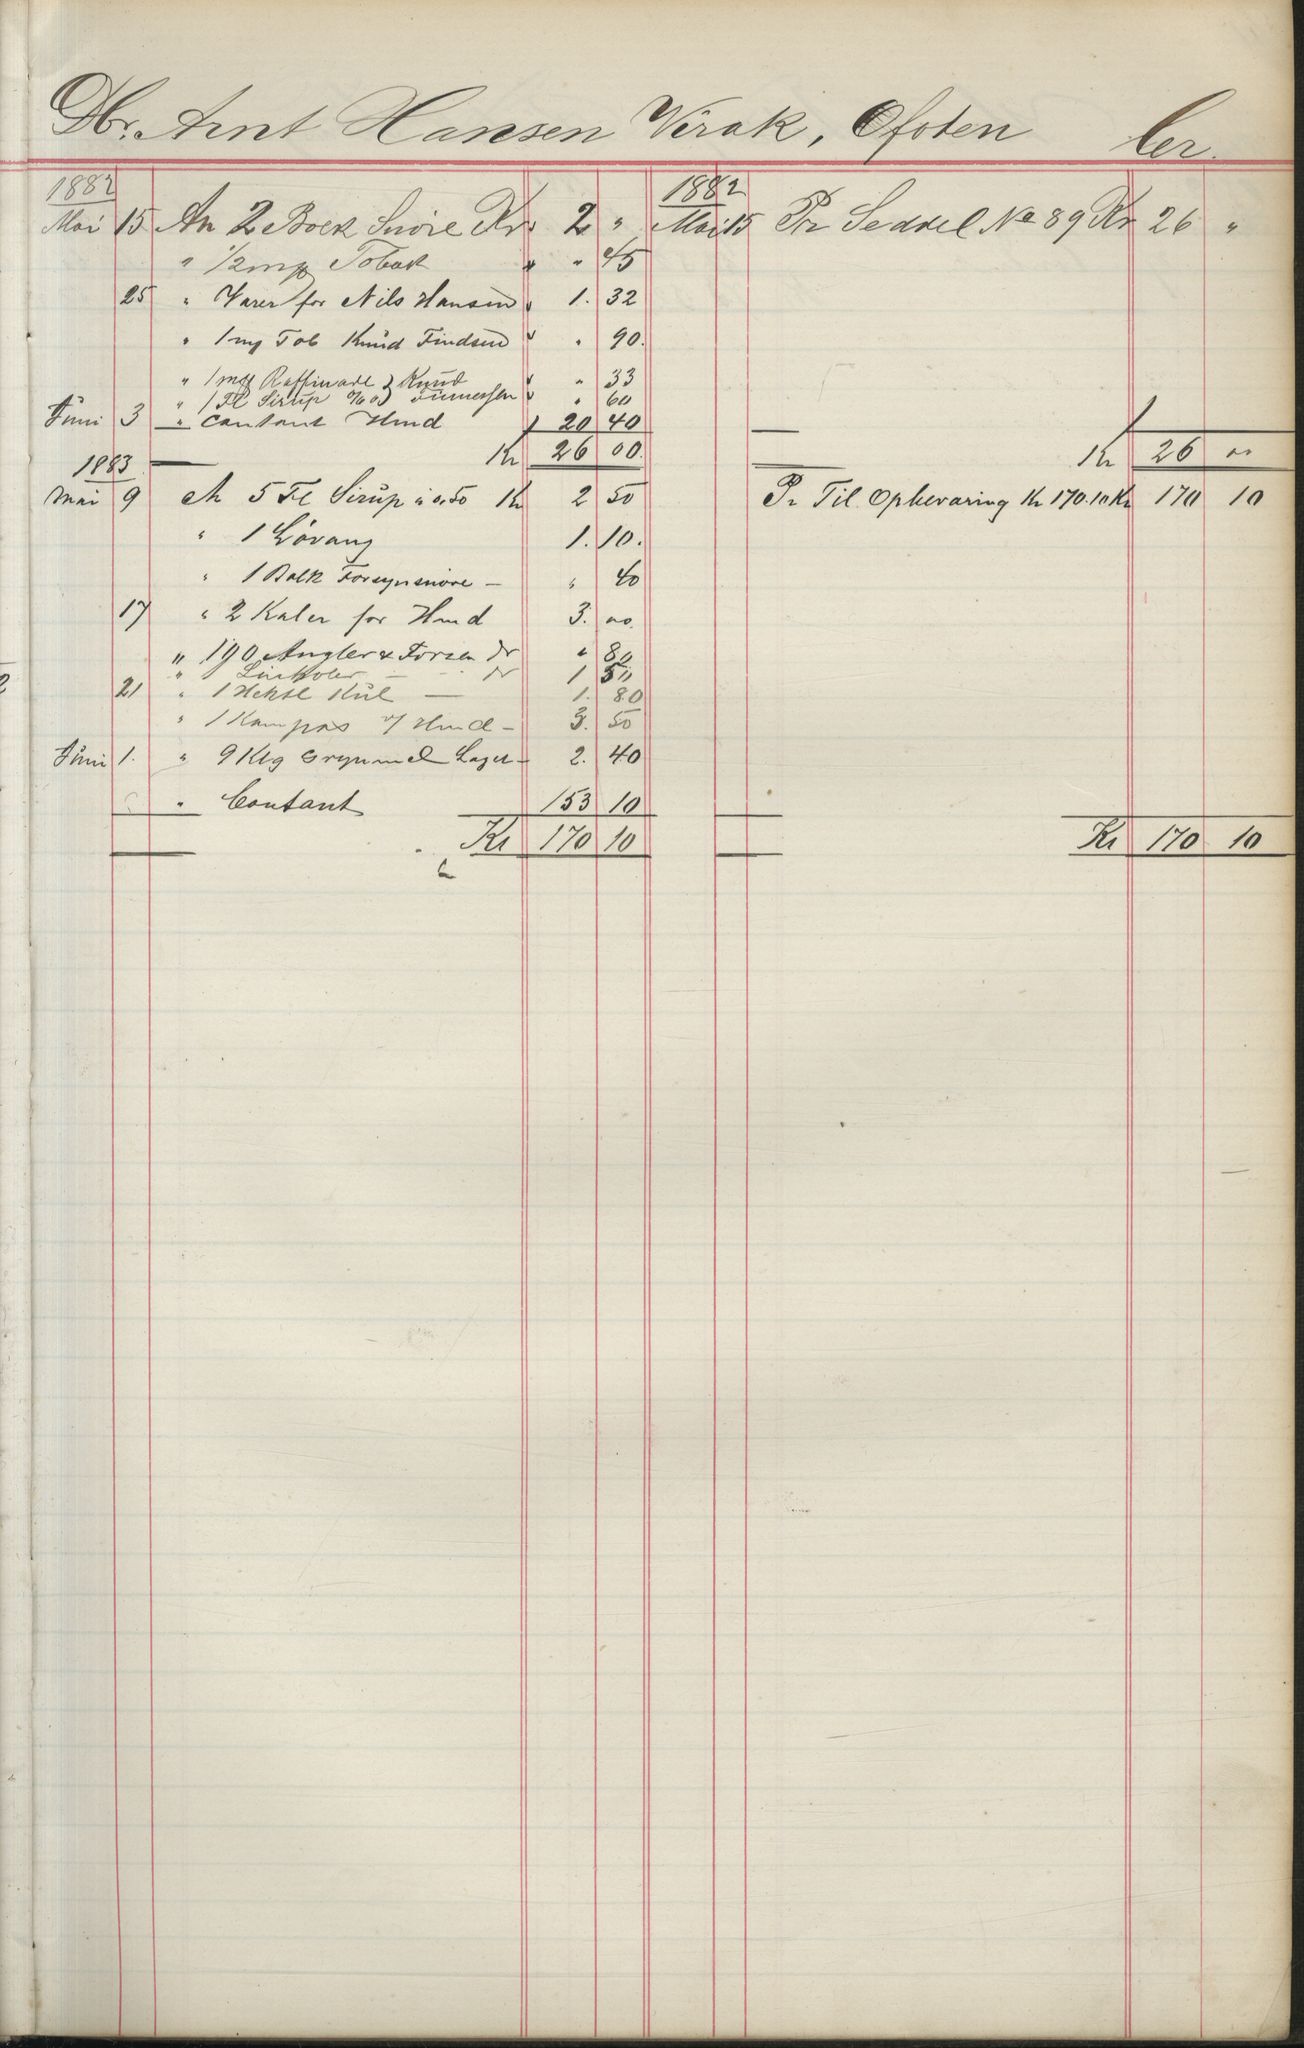 Dbr. Arnt Hansen Virak, Ofoten Cr.
1882
Mai 15 An 2 Bock Snöre Kr 2 "
" 1/2 mp Tobak " " 45
25 " Varer for Nils Hansen " 1. 32
" 1 mp Tob Knud Findsen " " 90.
" 1 mp Raffinade } Knud " " 33
" 1 Fl Sirup } " " 60
Juni 3 " Contant Hmd 20 40
Kr 26 00
1883
Mai 9 An 5 Fl Sirup a 0.50 Kr 2 50
" 1 1.10.
" 1 Bolk Forsynsnöre — " 40
17 " 2 for Hmd 3. 00
" 190 Angler & Forsen Dr " 80
" 1 50
21 " 1 Hektl Kul — 1. 80
" 1 Kompas v/ Hmd — 3. 50
Juni 1. " 9 Klg Lager — 2. 40
" Contant 153 10
Kr 170 10
1882
Mai 15 Pr Seddel No 89 Kr 26 "
Kr 26 00
Pr Til Opbevaring Kr 170.10 Kr 170 10
Kr 170 10